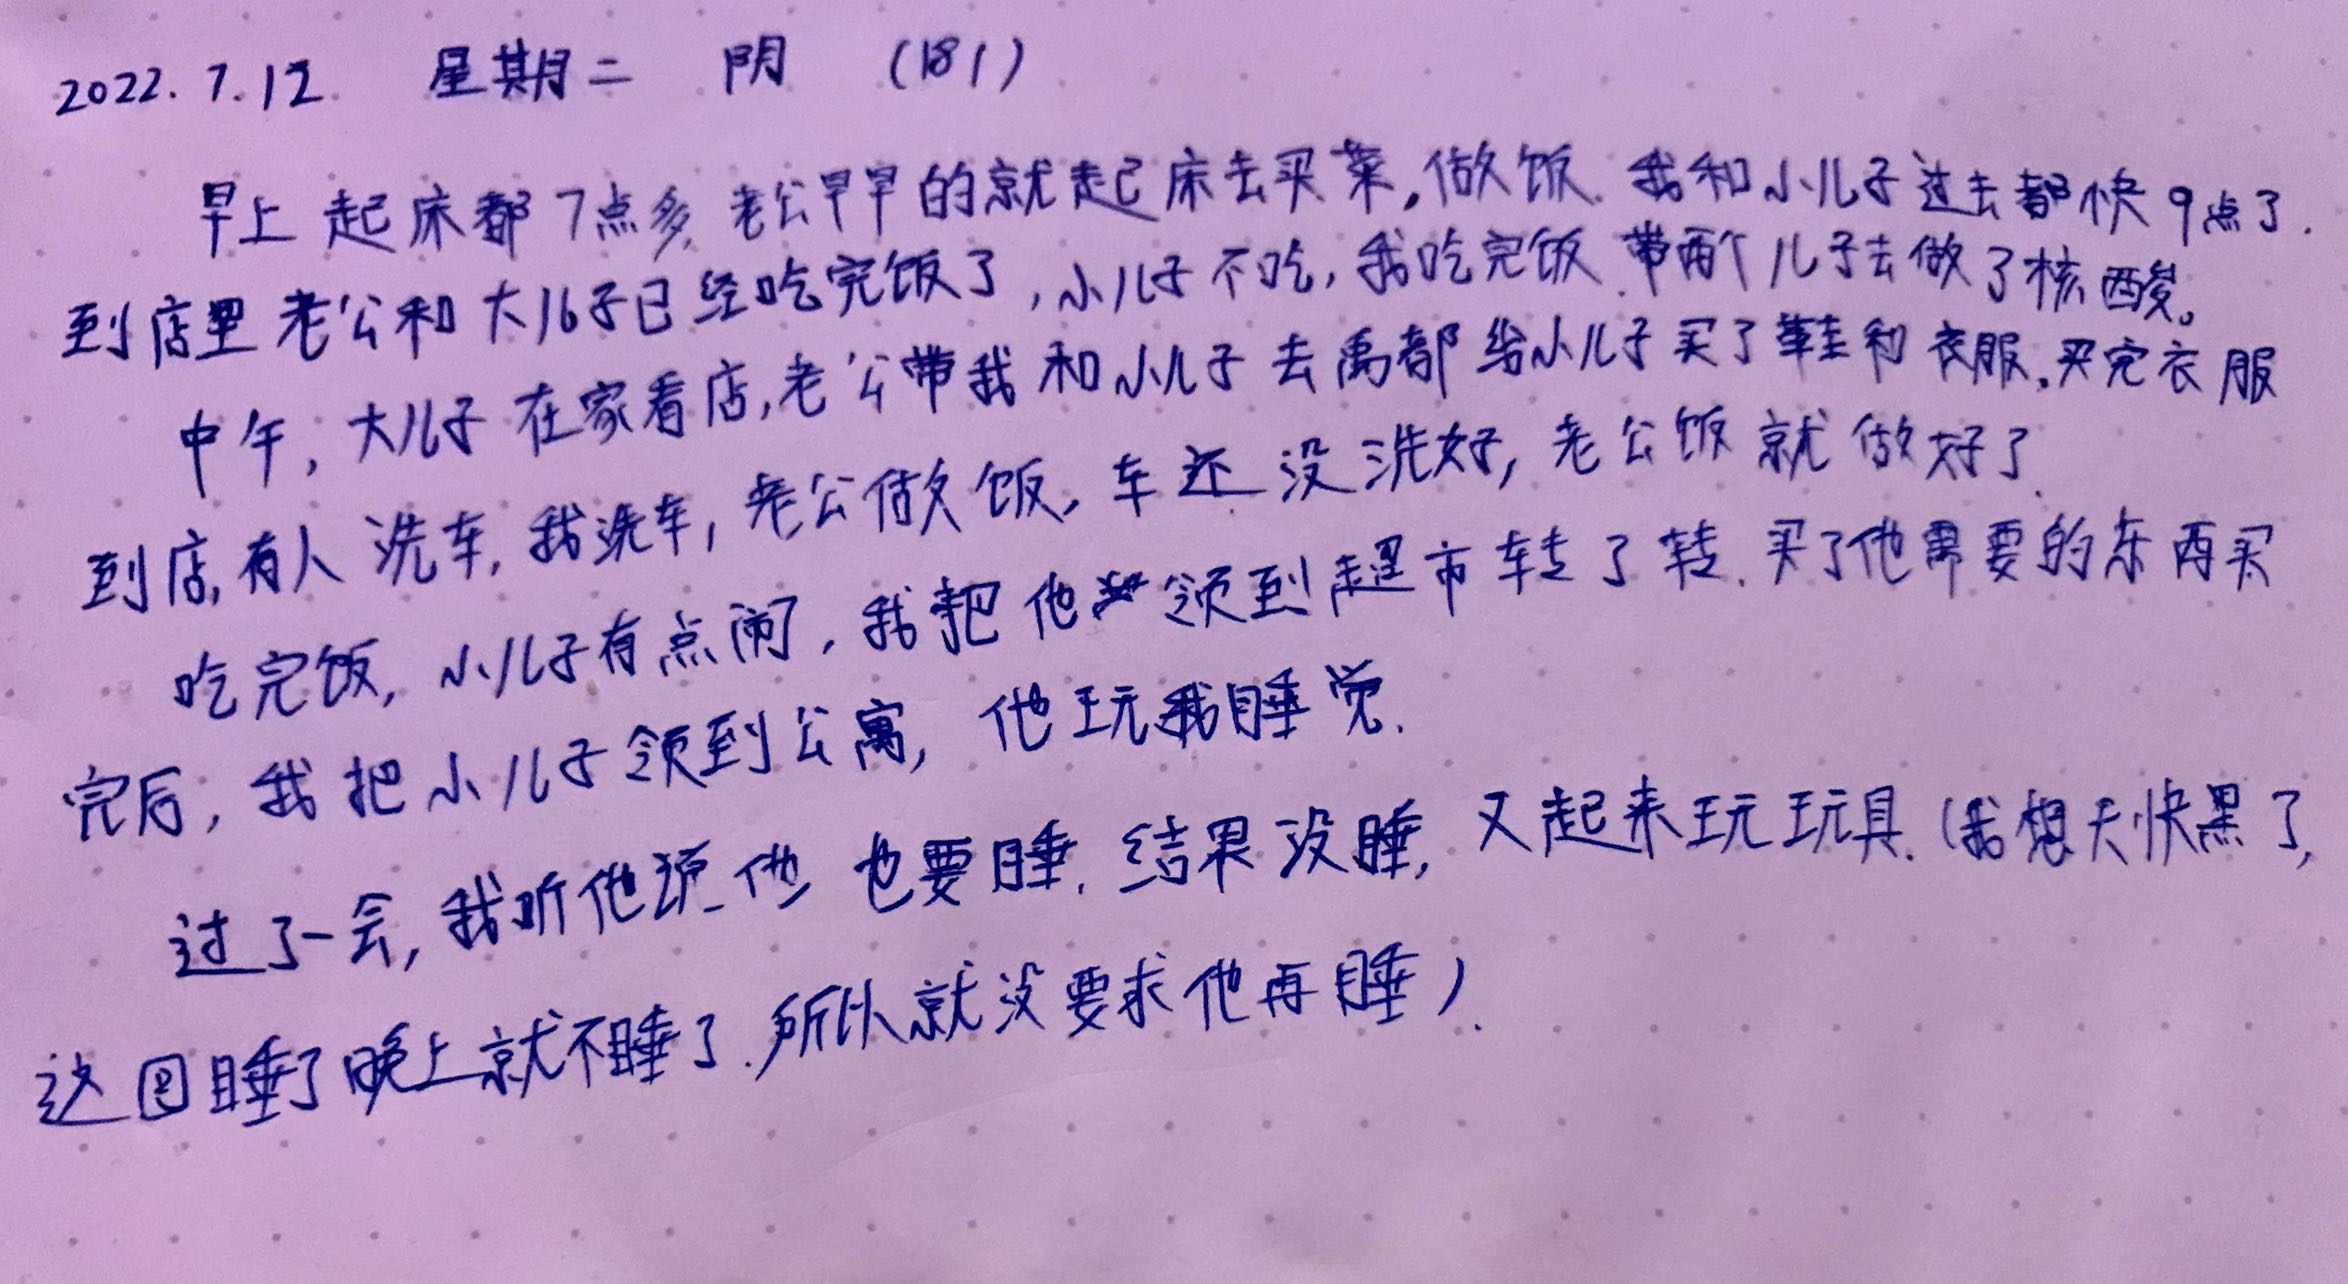 2022.7.12 星期二 阴 (181)
早上起床都7点多,老公早早的就起床去买菜,做饭.我和小儿子过去都快9点了.
到店里老公和大儿子已经吃完饭了,小儿子不吃,我吃完饭.带两个儿子去做了核酸。
中午,大儿子在家看店,老公带我和小儿子去禹都给小儿子买了鞋和衣服.买完衣服
到店,有人洗车,我洗车,老公做饭,车还没洗好,老公饭就做好了.
吃完饭,小儿子有点闹,我把他领到超市转了转.买了他需要的东西买
完后,我把小儿子领到公寓,他玩我睡觉.
过了一会,我听他说他也要睡.结果没睡,又起来玩玩具.(我想天快黑了,
这回睡了晚上就不睡了.所以就没要求他再睡).